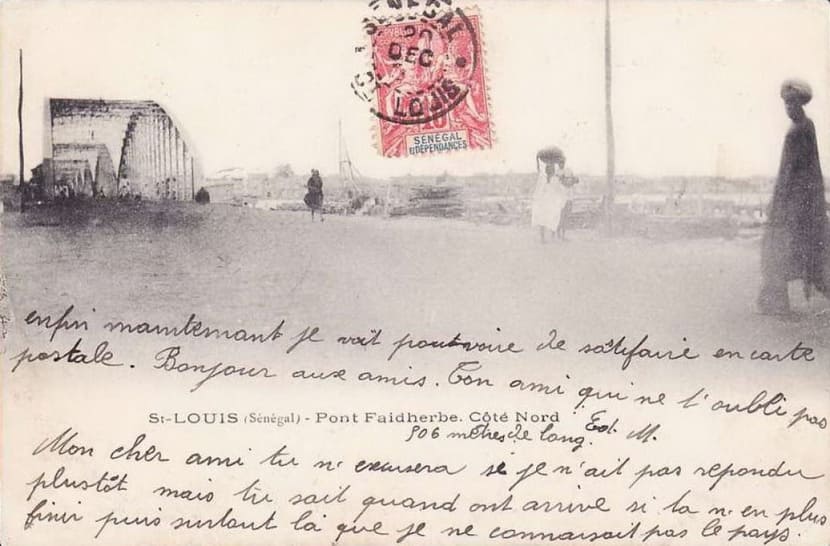 SÉNÉGAL
20
DEC
LOUIS
10
SÉNÉGAL
DÉPENDANCES
enfin maintemant je voit poutvoire de sátifaire en carte
postale. Bonjour aux amis. Ton ami qui ne t'oubli pas
ST-LOUIS (Sénégal) - Pont Faidherbe. Côté Nord Ed. M.
506 mètres de long.
Mon cher ami tu n'excusera si je n'ait pas repondu
plustôt mais tu sait quand ont arrive si la n'en plus
finir puis surtout là que je ne connaisait pas le pays.